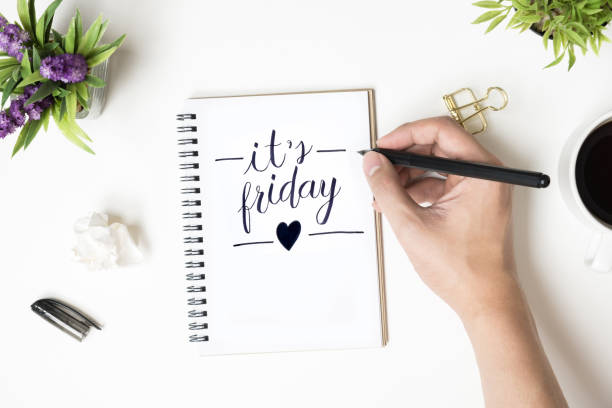 it's
friday